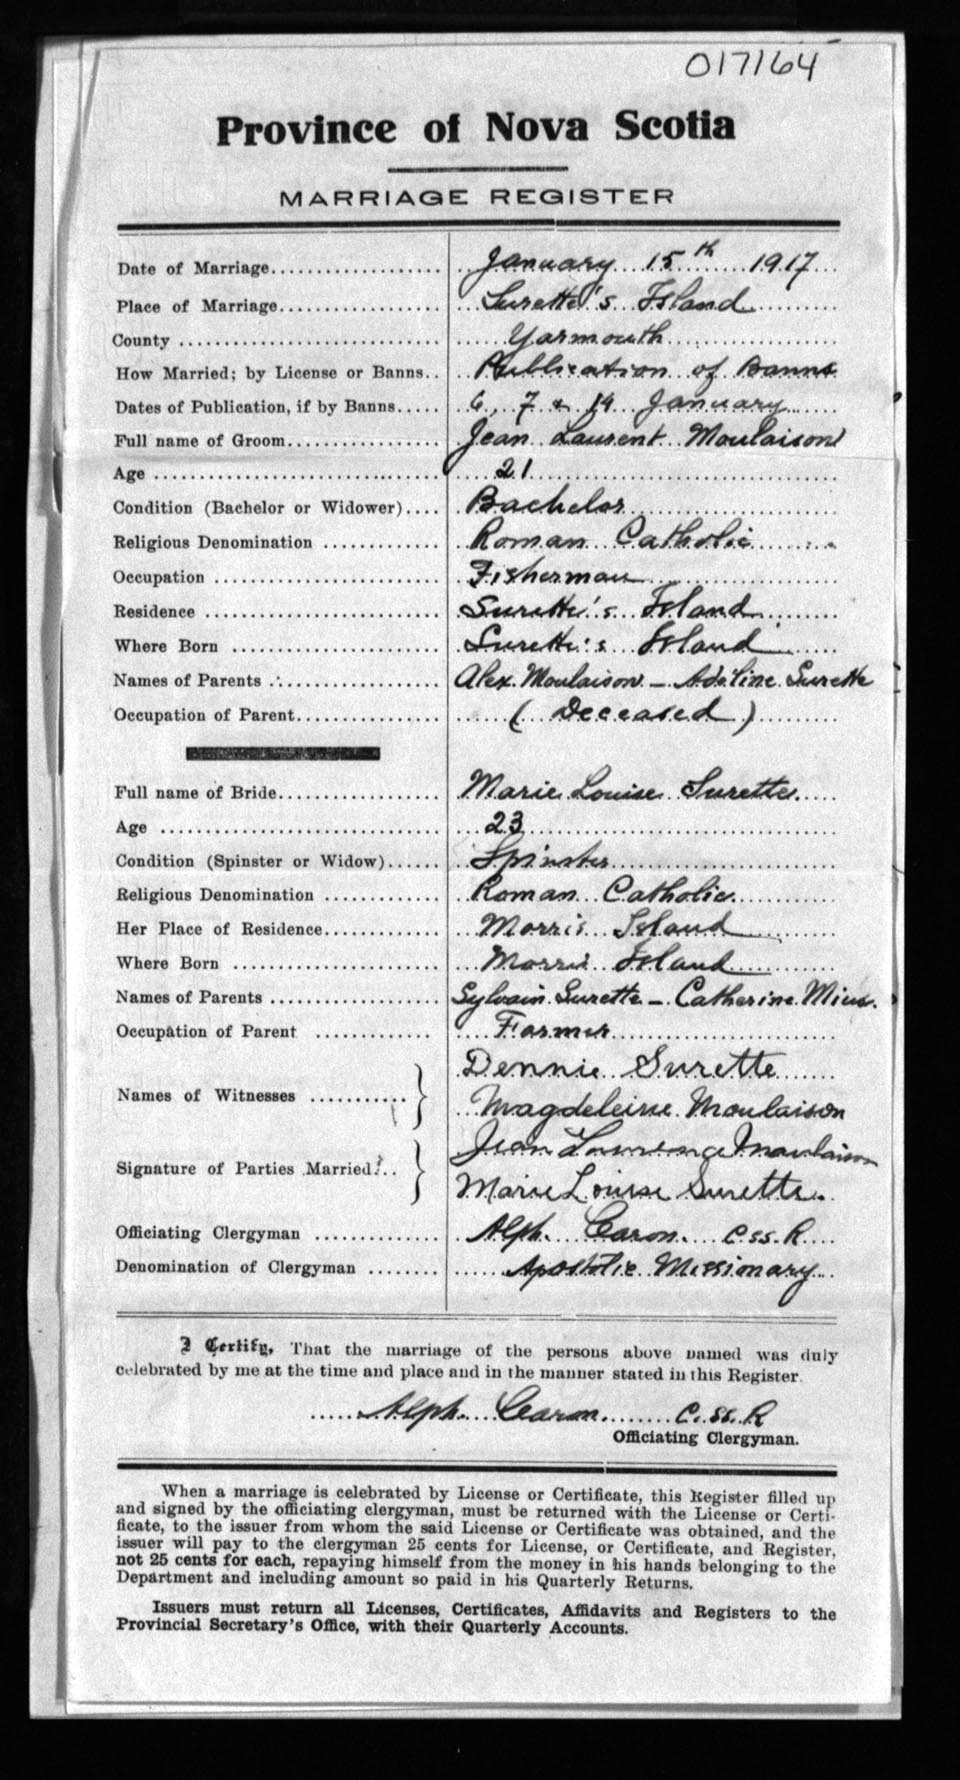 017164
Province of Nova Scotia
MARRIAGE REGISTER
Date of Marriage.................... January 15th 1917
Place of Marriage................... Surette's Island
County ............................. Yarmouth
How Married; by License or Banns.. Publication of Banns
Dates of Publication, if by Banns..... 6, 7 & 14 January
Full name of Groom.................. Jean Laurent Moulaison
Age ................................ 21
Condition (Bachelor or Widower).... Bachelor
Religious Denomination ............. Roman Catholic
Occupation ......................... Fisherman
Residence .......................... Surette's Island
Where Born ......................... Surette's Island
Names of Parents ................... Alex. Moulaison - Adéline Surette
Occupation of Parent................ (Deceased)
Full name of Bride.................. Marie Louise Surette.
Age ................................ 23
Condition (Spinster or Widow)...... Spinster
Religious Denomination ............. Roman Catholic.
Her Place of Residence.............. Morris Island
Where Born ......................... Morris Island
Names of Parents ................... Sylvain Surette - Catherine Mius.
Occupation of Parent ............... Farmer
Dennie Surette
Names of Witnesses ...........
Magdeleine Moulaison
Jean Lawrence Moulaison
Signature of Parties Married...
Marie Louise Surette.
Officiating Clergyman .............. Alph. Caron. C.ss.R
Denomination of Clergyman ........ Apostolic Missionary
I Certify, That the marriage of the persons above named was duly
celebrated by me at the time and place and in the manner stated in this Register.
Alph. Caron. C.ss.R
Officiating Clergyman.
When a marriage is celebrated by License or Certificate, this Register filled up
and signed by the officiating clergyman, must be returned with the License or Certi-
ficate, to the issuer from whom the said License or Certificate was obtained, and the
issuer will pay to the clergyman 25 cents for License, or Certificate, and Register,
not 25 cents for each, repaying himself from the money in his hands belonging to the
Department and including amount so paid in his Quarterly Returns.
Issuers must return all Licenses, Certificates, Affidavits and Registers to the
Provincial Secretary's Office, with their Quarterly Accounts.